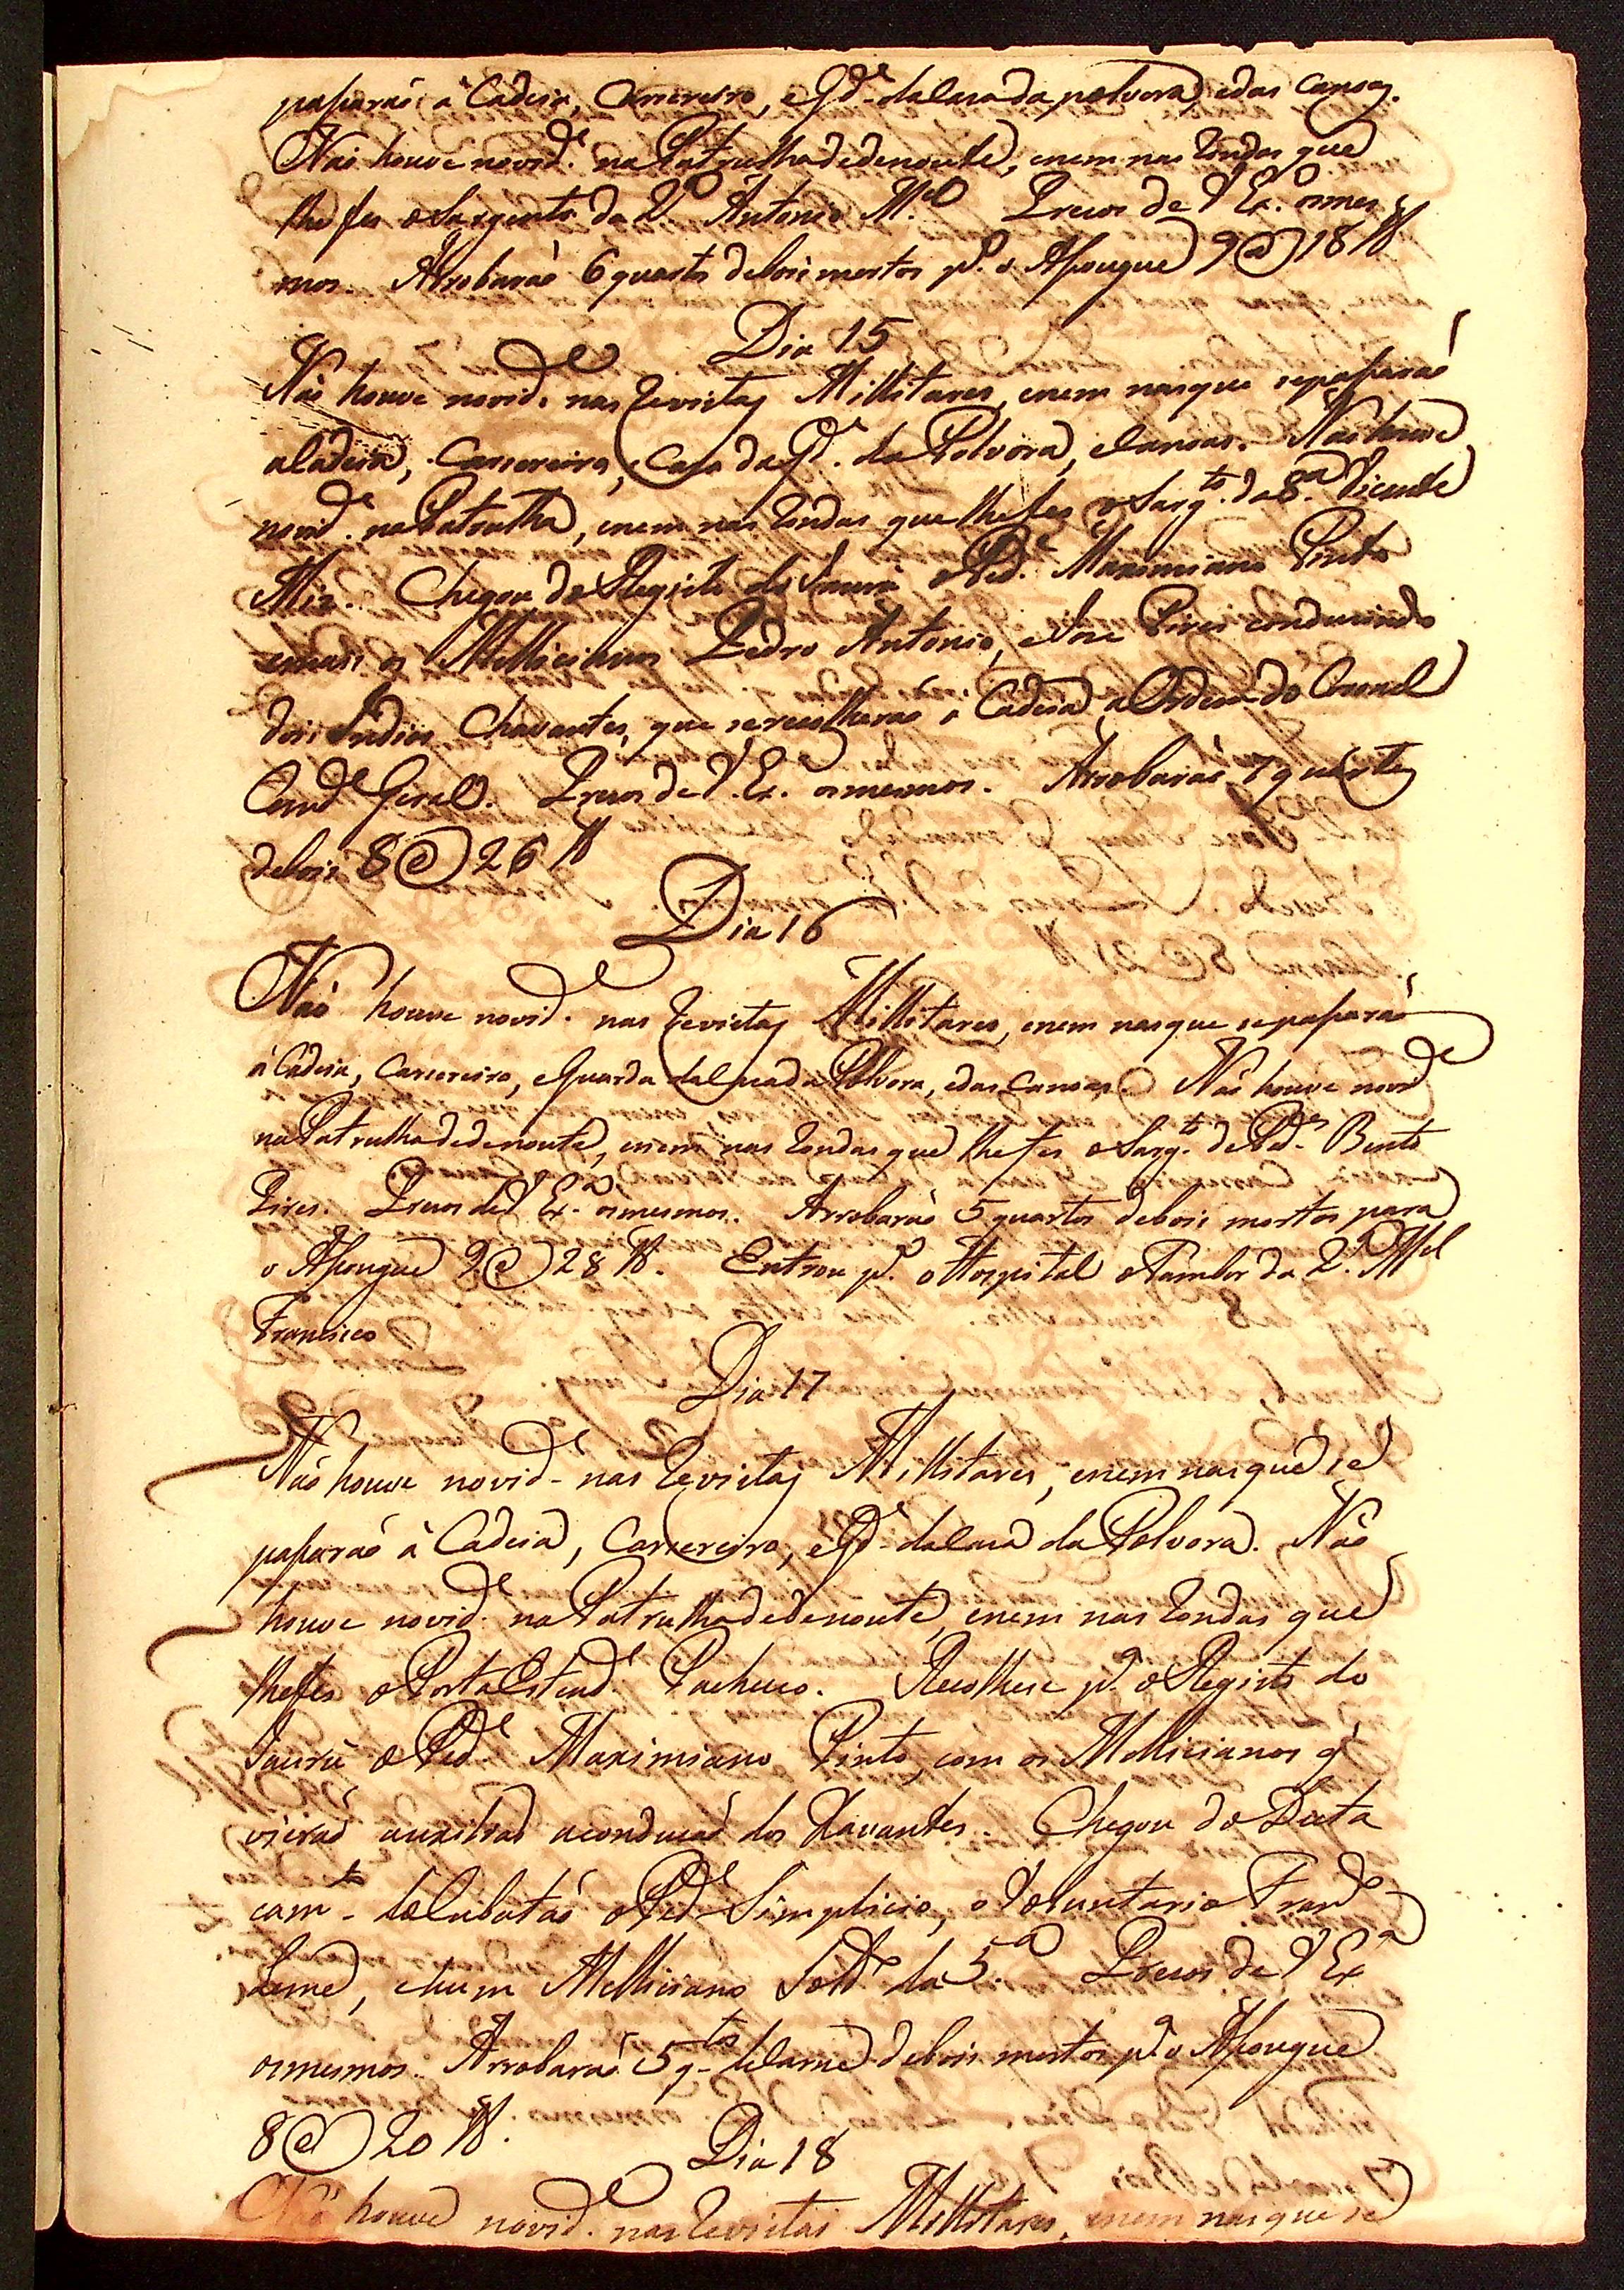 passaraõ á Cadeia, Carcereiro, e Gd.ᵉ da Casa da polvora, e das Canoas.
Naõ houve novid.ᵉ na Patrulha de denoute, enem nas Rondas que
lhe fes o Sargento da 2.ª Antonio M.ᵉˡ Prezos de V Ex.ª os mes
mos. Arrobaraõ 6 quartos debois mortos p.ª o Asougue 9@18 ℔
Dia 15
Naõ houve novid.ᵉ nas Revistas Millitares, enem nas que sepassaraõ
a Cadeia, Carcereiro, Casa da Gd.ᵉ da Polvora, e Canoas. Naõ houve
novid.ᵉ na Patrulha, enem nas Rondas que lhe fes o Sarg.ᵗᵒ da 8.ª Vicente
Miz. Chegou do Registo do Jaurú o Ped.ᵉ Maximiano Pinto
emais os Milliciannos Pedro Antonio, e Joze Pires conduzindo
dois Indios Chavantes, que serecolheraõ á Cadeia a Ordem do Coronel
Com.ᵈᵉ Geral. Prezos de V. Ex. os mesmos. Arrobaraõ 7 quartos
debois 8@26 ℔
Dia 16
Naõ houve novid.ᵉ nas Revistas Millitares, enem nas que sepassaraõ
á Cadeia, Carcereiro, e Guarda da Casa da Polvora, e das Canoas. Naõ houve novid.ᵉ
na Patrulha de denoute, enem nas Rondas que lhe fes o Sarg.ᵗᵒ de Ped.ᵉˢ Bento
Pires. Prezos de V Ex.ª os mesmos. Arrobaraõ 5 quartos debois mortos para
o Asougue 9@28 ℔. Entrou p.ª o Hospital o Tambor da 2.ª M.ᵉˡ
Francisco
Dia 17
Naõ houve novid.ᵉ nas Revistas Millitares, enem nas que se
passaraõ á Cadeia, Carcereiro, e Gd.ᵉ da Casa da Polvora. Naõ
houve novid.ᵉ na Patrulha de denoute, enem nas Rondas que
lhe fes o Porta Estend.ᵉ Pacheco. Recolhese p.ª o Registo do
Jaurú o Ped.ᵉ Maximiano Pinto, com os Millicianos q̃
vieraõ auxiliar a conduçaõ dos Xavantes. Chegou do Desta
cam.ᵗᵒ do Cubataõ o Ped.ᵉ Simplicio, o Voluntario Fran.ᶜᵒ
Leme, e hum Milliciano Sold.º da 5.ª Prezos de V Ex.ª
os mesmos. Arrobaraõ 5 q.ᵗᵒˢ de Carne debois mortos p.ª o Asougue
8@20 ℔.
Dia 18
Naõ houve novid.ᵉ nas Revistas Millitares, enem nas que se